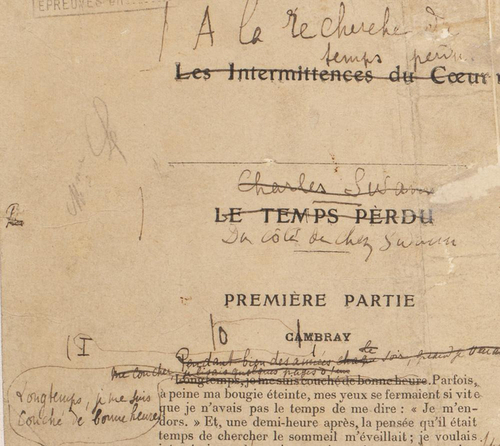 ÉPREUVES
A la recherche du
temps perdu
Les Intermittences du Cœur
Charles Swann
LE TEMPS PERDU
Du côté de chez Swann
PREMIÈRE PARTIE
CAMBRAY
I
Pendant bien des années, le soir, quand je
me coucher, je lisais quelques pages
Longtemps, je me suis couché de bonne heure. Parfois,
Longtemps, je me suis
couché de bonne heure
à peine ma bougie éteinte, mes yeux se fermaient si vite
que je n'avais pas le temps de me dire : « Je m'en-
dors. » Et, une demi-heure après, la pensée qu'il était
temps de chercher le sommeil m'éveillait ; je voulais